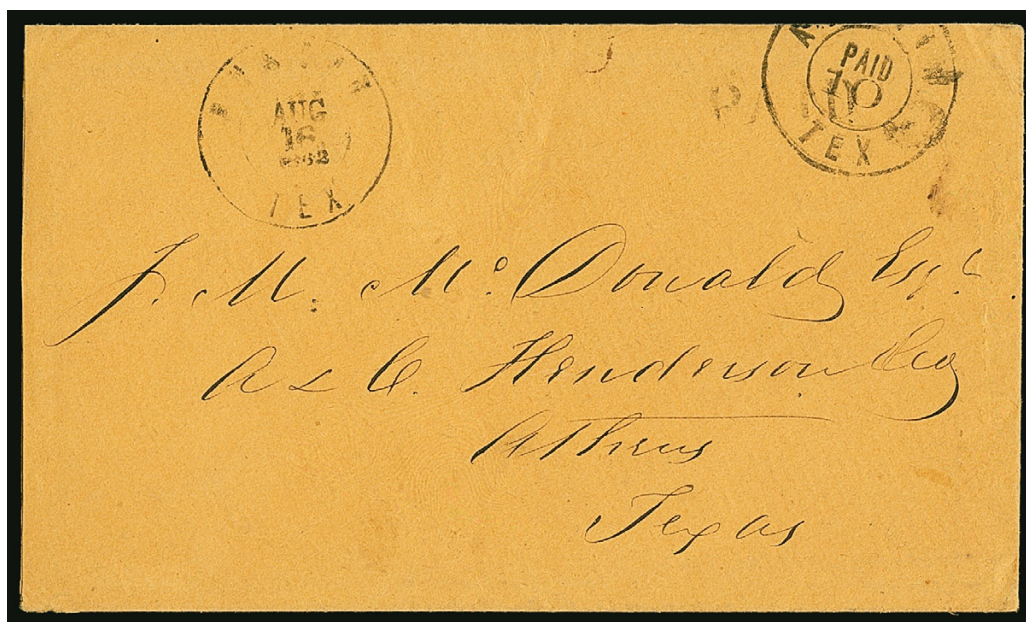 AUSTIN
AUG
16
1862
TEX
AUSTIN
PAID
10
TEX
PAID
J. M. McDonald Esqr.
A & C. Henderson Coy
Athens
Texas